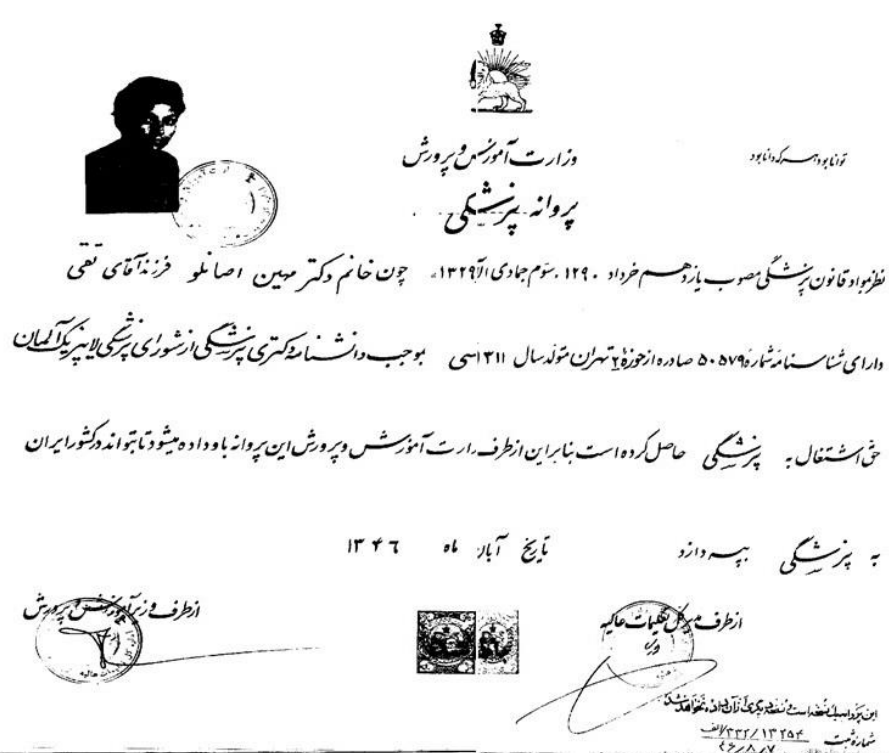 توانا بود هر که دانا بود
وزارت آموزش و پرورش
پروانه پزشکی
نظر بمواد قانون پزشکی مصوب یازدهم خرداد ۱۲۹۰ سوم جمادی الآ ۱۳۲۹ چون خانم دکتر مهین اصانلو فرزند آقای تقی
دارای شناسنامه شماره ۵۰۵۷۹ صادره از حوزه ۲ تهران متولد سال ۱۳۱۱ شمسی بموجب دانشنامه دکتری پزشکی از شورای پزشکی لایپزیک آلمان
حق اشتغال به پزشکی حاصل کرده است بنابراین از طرف وزارت آموزش و پرورش این پروانه باو داده میشود تا بتواند در کشور ایران
به پزشکی بپردازد تاریخ آبان ماه ۱۳۴۶
از طرف مدیر کل تعلیمات عالیه
از طرف وزیر آموزش و پرورش
این پروانه یک نسخه است و نسخه دیگری از آن داده نخواهد شد
شماره ثبت ۱۳۲۵۴/۳۳۲/الف
۴۶/۸/۷